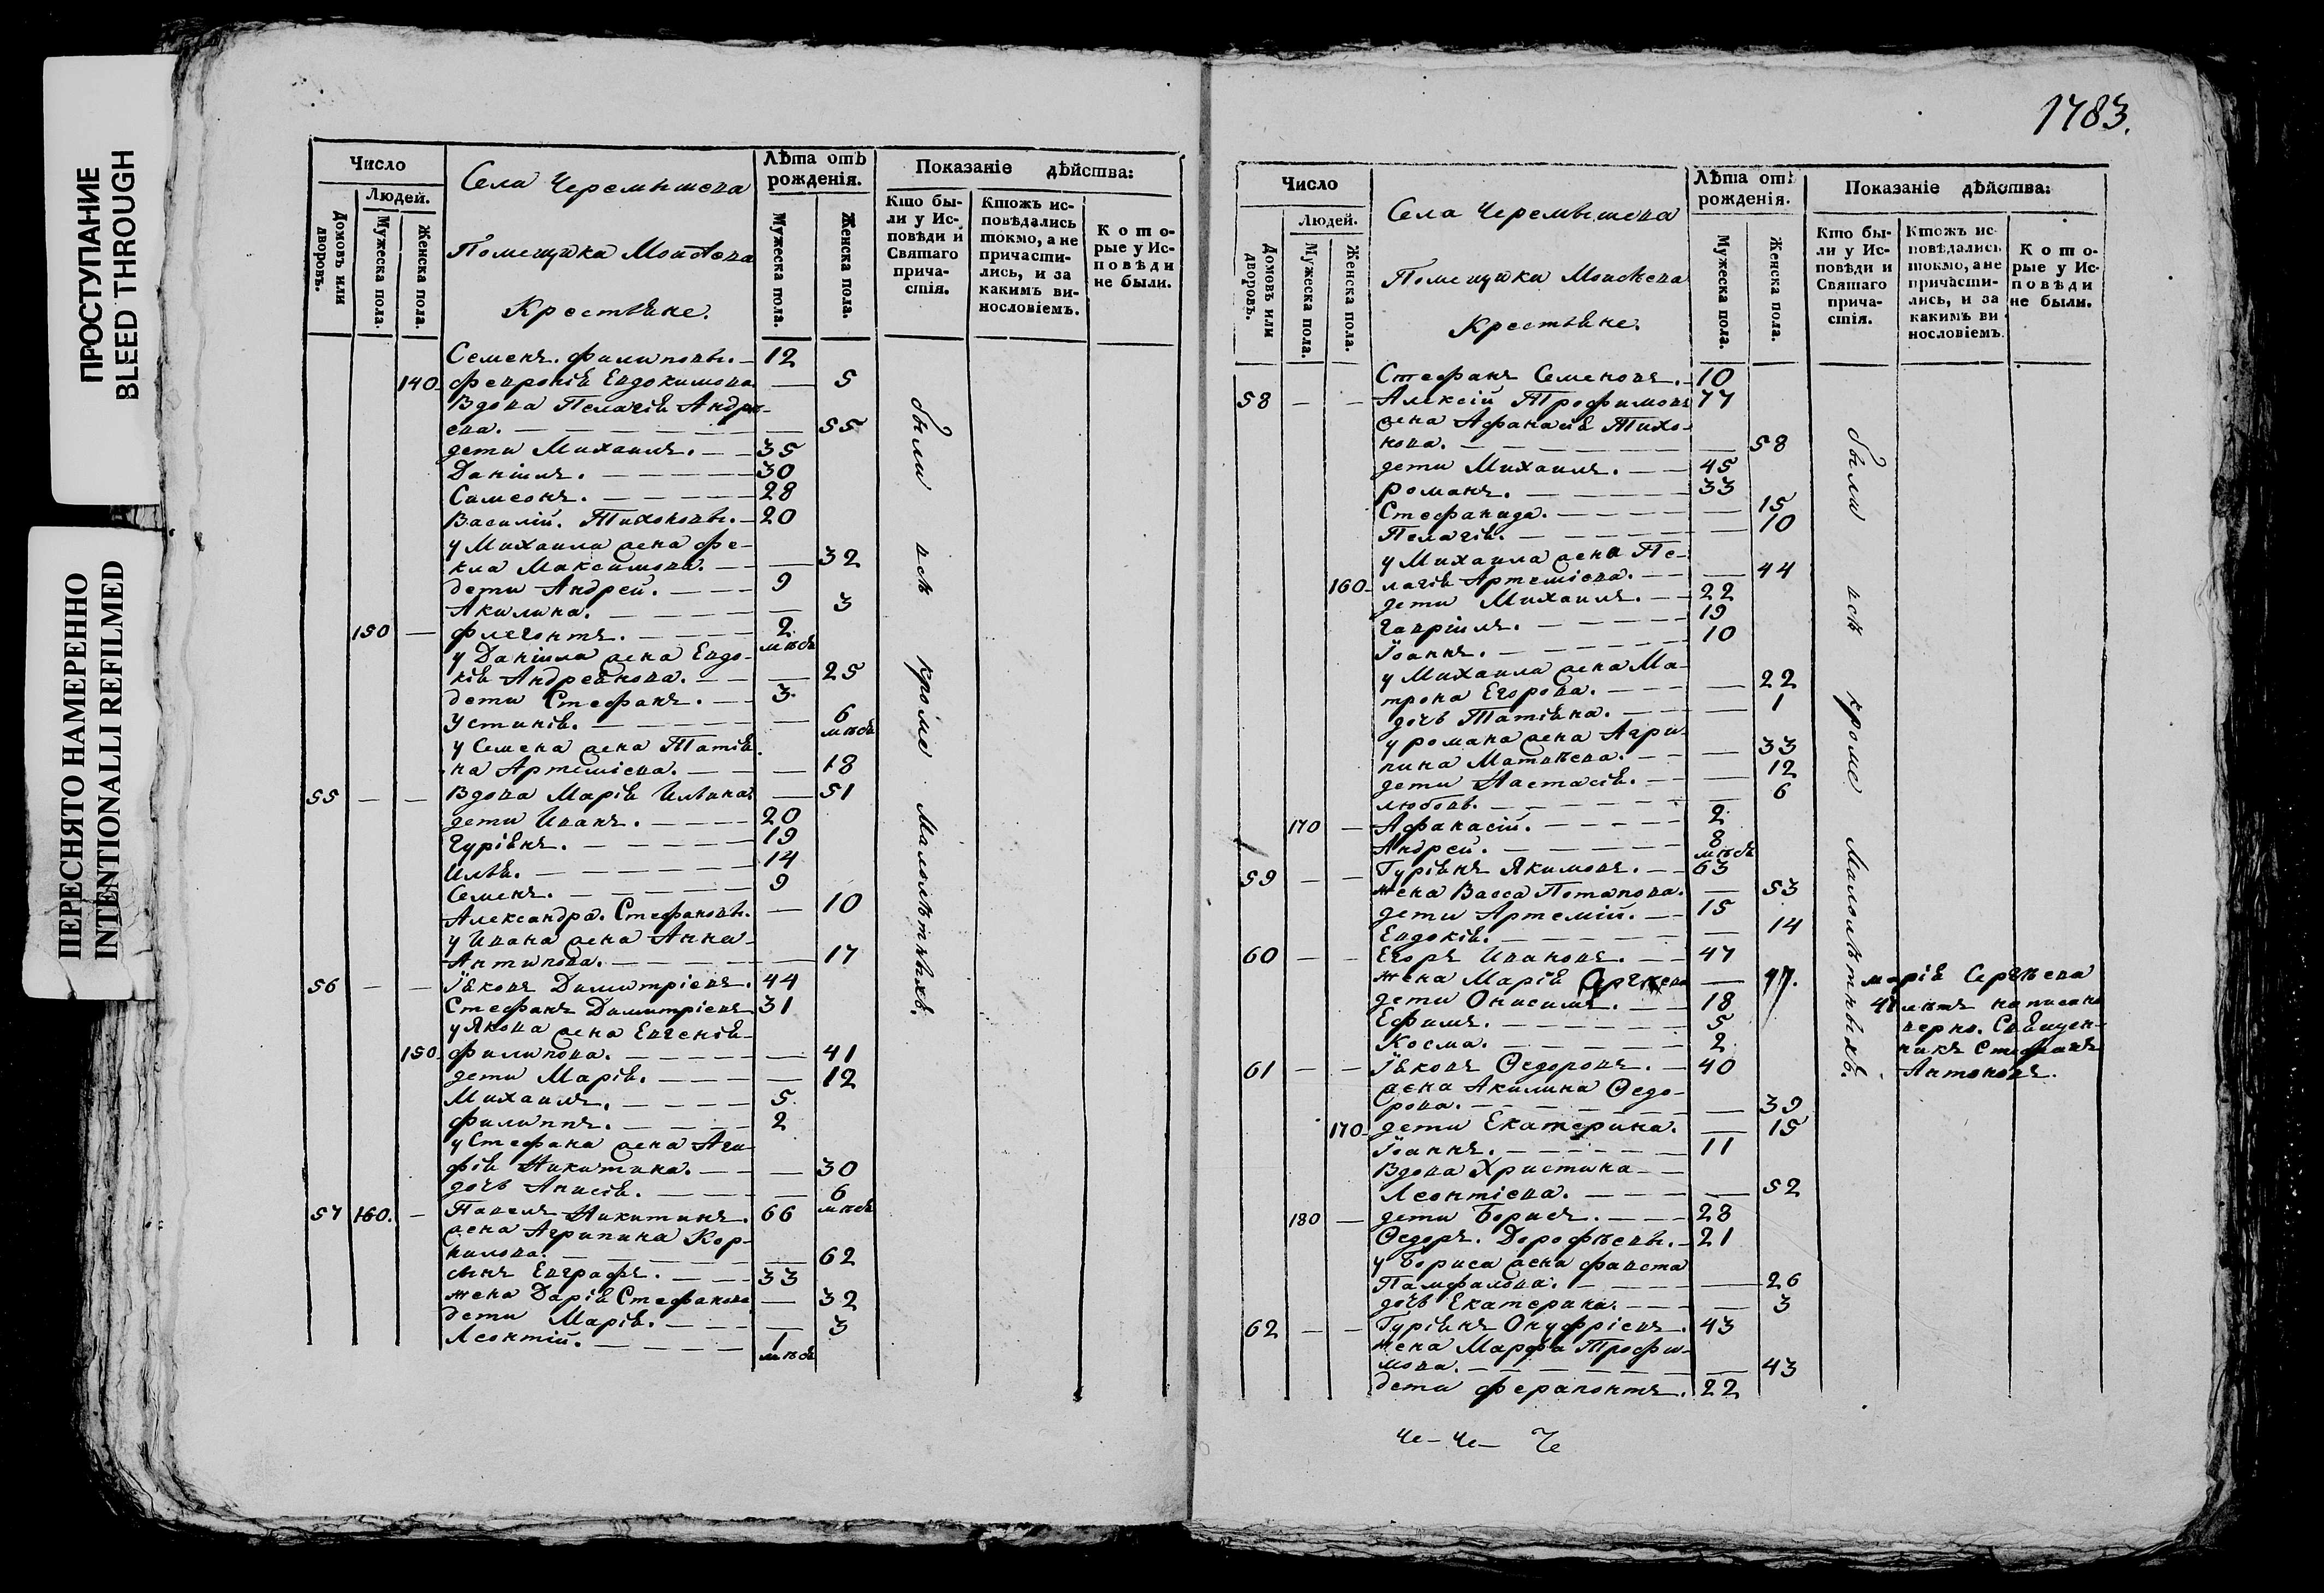 ПРОСТУПАНИЕ
BLEED THROUGH
ПЕРЕСНЯТО НАМЕРЕННО
INTENTIONALLI REFILMED
Число
Людей.
Домовъ или дворовъ.
Мужеска пола.
Женска пола.
Села Черемышева
Помещика Моисѣева
Крестьяне.
Лѣта отъ рожденія.
Мужеска пола.
Женска пола.
Показаніе дѣйства:
Кто бы-
ли у Ис-
повѣди и
Святаго
прича-
стія.
Ктожъ ис-
повѣдались
токмо, а не
причасти-
лись, и за
какимъ ви-
нословіемъ.
Кото-
рые у Ис-
повѣди
не были.
Семенъ. Филиповы. 12
140 Февронія Евдокимова 5
Вдова Пелагія Андре-
ева. 55
дети Михаилъ. 35
Даніилъ. 30
Симеонъ. 28
Василій. Тихоновы. 20
у Михаила жена Фе-
кла Максимова. 32
дети Андрей. 9
Акилина. 3
150 Флегонтъ. 2 мѣсѣ
у Даніила жена Евдо-
кія Андреянова. 25
дети Стефанъ. 3
Устинія. 6 мѣсѣ
у Семена жена Татия-
на Артеміева. 18
55 Вдова Марія Ильина 51
дети Иванъ. 20
Гуріянъ. 19
Илья. 14
Семенъ. 9
Александра. Стефановы. 10
у Ивана жена Анна
Антипова. 17
56 Іяковъ Димитріевъ. 44
Стефанъ Димитріевъ 31
у Якова жена Евгенія
150 Филипова. 41
дети Марія. 12
Михаилъ. 5
Филиппъ. 2
у Стефана жена Ага-
фія Никитина. 30
дочь Анисія. 6 мѣсѣ
57 160. Павелъ Никитинъ. 66
жена Агрипина Кор-
нилова. 62
сынъ Евграфъ. 33
жена Дарія Стефанова 32
дети Марія. 3
Леонтій. 1 мѣсѣ
были всѣ кроме малолѣтныхъ.
1783.
Число
Людей.
Домовъ или дворовъ.
Мужеска пола.
Женска пола.
Села Черемышева
Помещика Моисѣева
Крестьяне.
Лѣта отъ рожденія.
Мужеска пола.
Женска пола.
Показаніе дѣйства:
Кто бы-
ли у Ис-
повѣди и
Святаго
прича-
стія.
Ктожъ ис-
повѣдались
токмо, а не
причасти-
лись, и за
какимъ ви
нословіемъ.
Кото-
рые у Ис-
повѣди
не были.
Стефанъ Семеновъ. 10
58 Алексій Трофимовъ 77
жена Афанасія Тихо-
нова. 58
дети Михаилъ. 45
романъ. 33
Стефанида. 15
Пелагія. 10
у Михаила жена Пе-
160 лагія Артеміева. 44
дети Михаилъ. 22
Гавріилъ. 19
Іоаннъ. 10
у Михаила жена Ма-
трона Егорова. 22
дочь Татияна. 1
у романа жена Агри-
пина Матвѣева. 33
дети Настасія. 12
любовь. 6
170 Афанасій. 2
Андрей. 8 мѣсѣ
59 Гуріянъ Якимовъ. 63
жена Васса Потапова. 53
дети Артемій. 15
Евдокія. 14
60 Егоръ Ивановъ. 47
жена Марія Сергѣева 47.
дети Онисимъ. 18
Ефимъ. 5
Косма. 2
61 Іяковъ Ѳедоровъ. 40
жена Акилина Ѳедо-
рова. 39
170 дети Екатерина. 15
Іоаннъ. 11
Вдова Христина
Леонтіева. 52
180 дети Борисъ. 28
Ѳедоръ. Дорофѣевы. 21
у Бориса жена Фавста
Памфилова. 26
дочь Екатерина. 3
62 Гуріянъ Онуфріевъ. 43
жена Марфа Трофи-
мова. 43
дети Ферапонтъ. 22
были всѣ кроме малолѣтныхъ.
марія Сергѣева
лѣтъ написано
верно. Священ-
никъ Стефанъ
Антоновъ.
Че- Че- Че